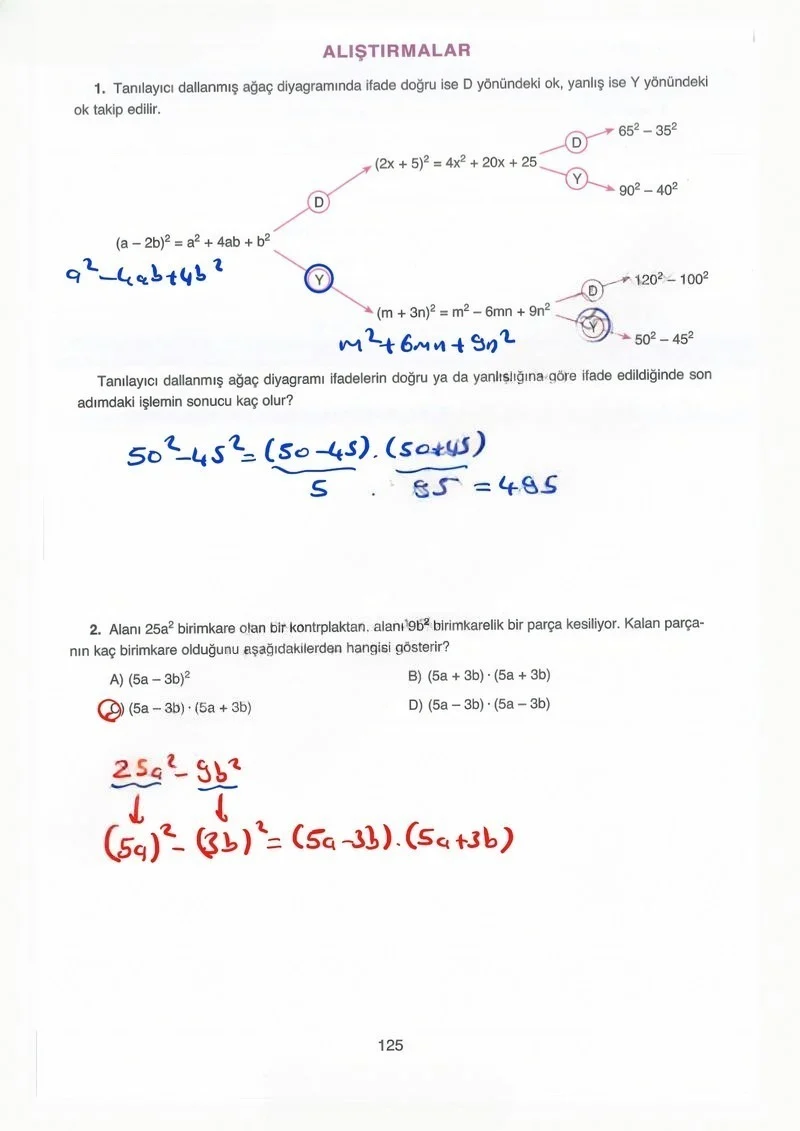 ALIŞTIRMALAR
1. Tanılayıcı dallanmış ağaç diyagramında ifade doğru ise D yönündeki ok, yanlış ise Y yönündeki
ok takip edilir.
65² – 35²
D
(2x + 5)² = 4x² + 20x + 25
Y
90² – 40²
D
(a – 2b)² = a² + 4ab + b²
a² – 4ab + 4b²
Y
120² – 100²
D
(m + 3n)² = m² – 6mn + 9n²
Y
50² – 45²
m² + 6mn + 9n²
Tanılayıcı dallanmış ağaç diyagramı ifadelerin doğru ya da yanlışlığına göre ifade edildiğinde son
adımdaki işlemin sonucu kaç olur?
50² – 45² = (50 – 45) . (50 + 45)
5 . 95 = 495
2. Alanı 25a² birimkare olan bir kontrplaktan, alanı 9b² birimkarelik bir parça kesiliyor. Kalan parça-
nın kaç birimkare olduğunu aşağıdakilerden hangisi gösterir?
A) (5a – 3b)² B) (5a + 3b) · (5a + 3b)
C) (5a – 3b) · (5a + 3b) D) (5a – 3b) · (5a – 3b)
25a² – 9b²
(5a)² – (3b)² = (5a – 3b) . (5a + 3b)
125